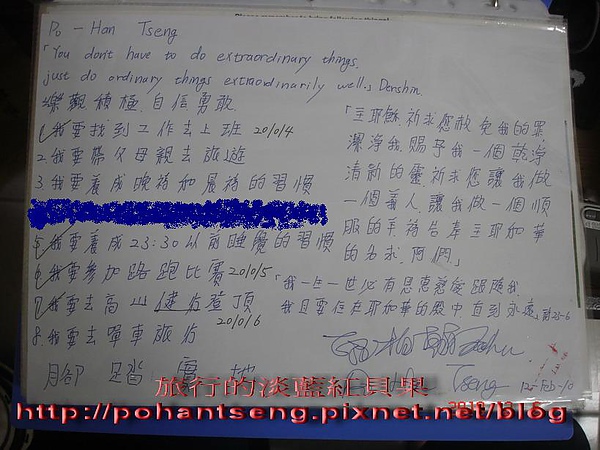 Po - Han Tseng
「You don't have to do extraordinary things,
just do ordinary things extraordinarily well.」 Denshin.
樂觀積極.自信勇敢
1.我要找到工作去上班 20/0/4
2.我要帶父母親去旅遊
3.我要養成晚禱和晨禱的習慣
5.我要養成23:30以前睡覺的習慣
6.我要參加路跑比賽 20/0/5
7.我要去高山健行登頂
20/0/6
8.我要去單車旅行
腳 踏 實 地
「主耶穌.祈求您赦免我的罪
潔淨我.賜予我一個乾淨
清新的靈.祈求您讓我做
一個義人.讓我做一個順
服的羊.禱告奉主耶和華
的名求.阿們」
「我一生一世必有恩惠慈愛跟隨我
我且要住在耶和華的殿中.直到永遠」詩23-6
Tseng 12-Feb-10
旅行的淡藍紅貝果
http://pohantseng.pixnet.net/blog